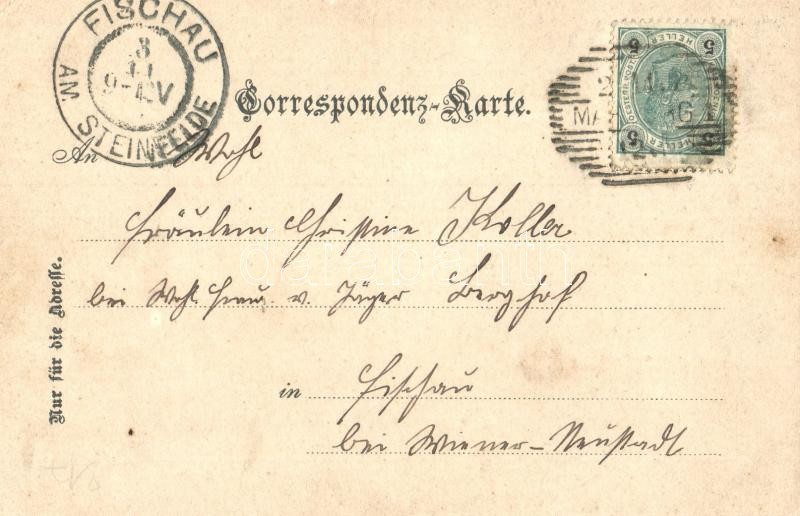 FISCHAU
AM STEINFELDE
5 HELLER 5
Correspondenz-Karte.
An Wohl
Fräulein Christine Koller
bei Wohl. Frau v. Jäger Berghof
in Fischau
bei Wiener-Neustadt
Nur für die Adresse.